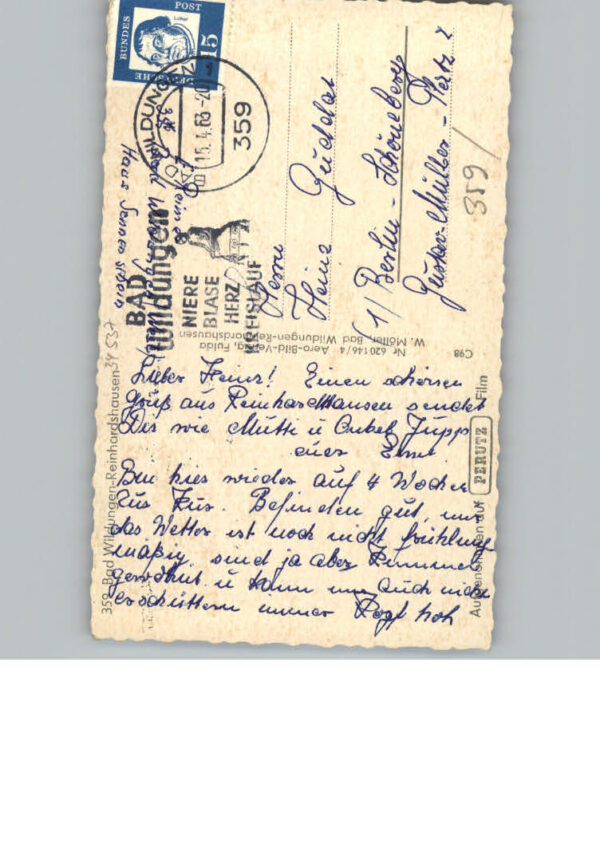 DEUTSCHE
BUNDES
POST
15
BAD WILDUNGEN
15.4.63-20
359
BAD
Wildungen
NIERE
BLASE
HERZ
KREISLAUF
Herrn
Heinz Guddat
(1) Berlin-Schöneberg
Gustav-Müller-
359/
34537
Haus Sonnenschein
359 Bad Wildungen-Reinhardshausen
Nr. 620146/4 Aero-Bild-Verlag, Fulda
W. Möller, Bad Wildungen-Reinhardshausen
C98
Aufgenommen auf PERUTZ Film
Lieber Heinz! Einen schönen
Gruß aus Reinhardshausen sendet
Dir wie Mutti u Onkel Jupp
euer
Bin hier wieder auf 4 Wochen
zur Kur. Befinden gut, nur
das Wetter ist noch nicht frühlings
mäßig, sind ja aber Kummer
gewöhnt u kann uns auch nicht
erschüttern immer Kopf hoch